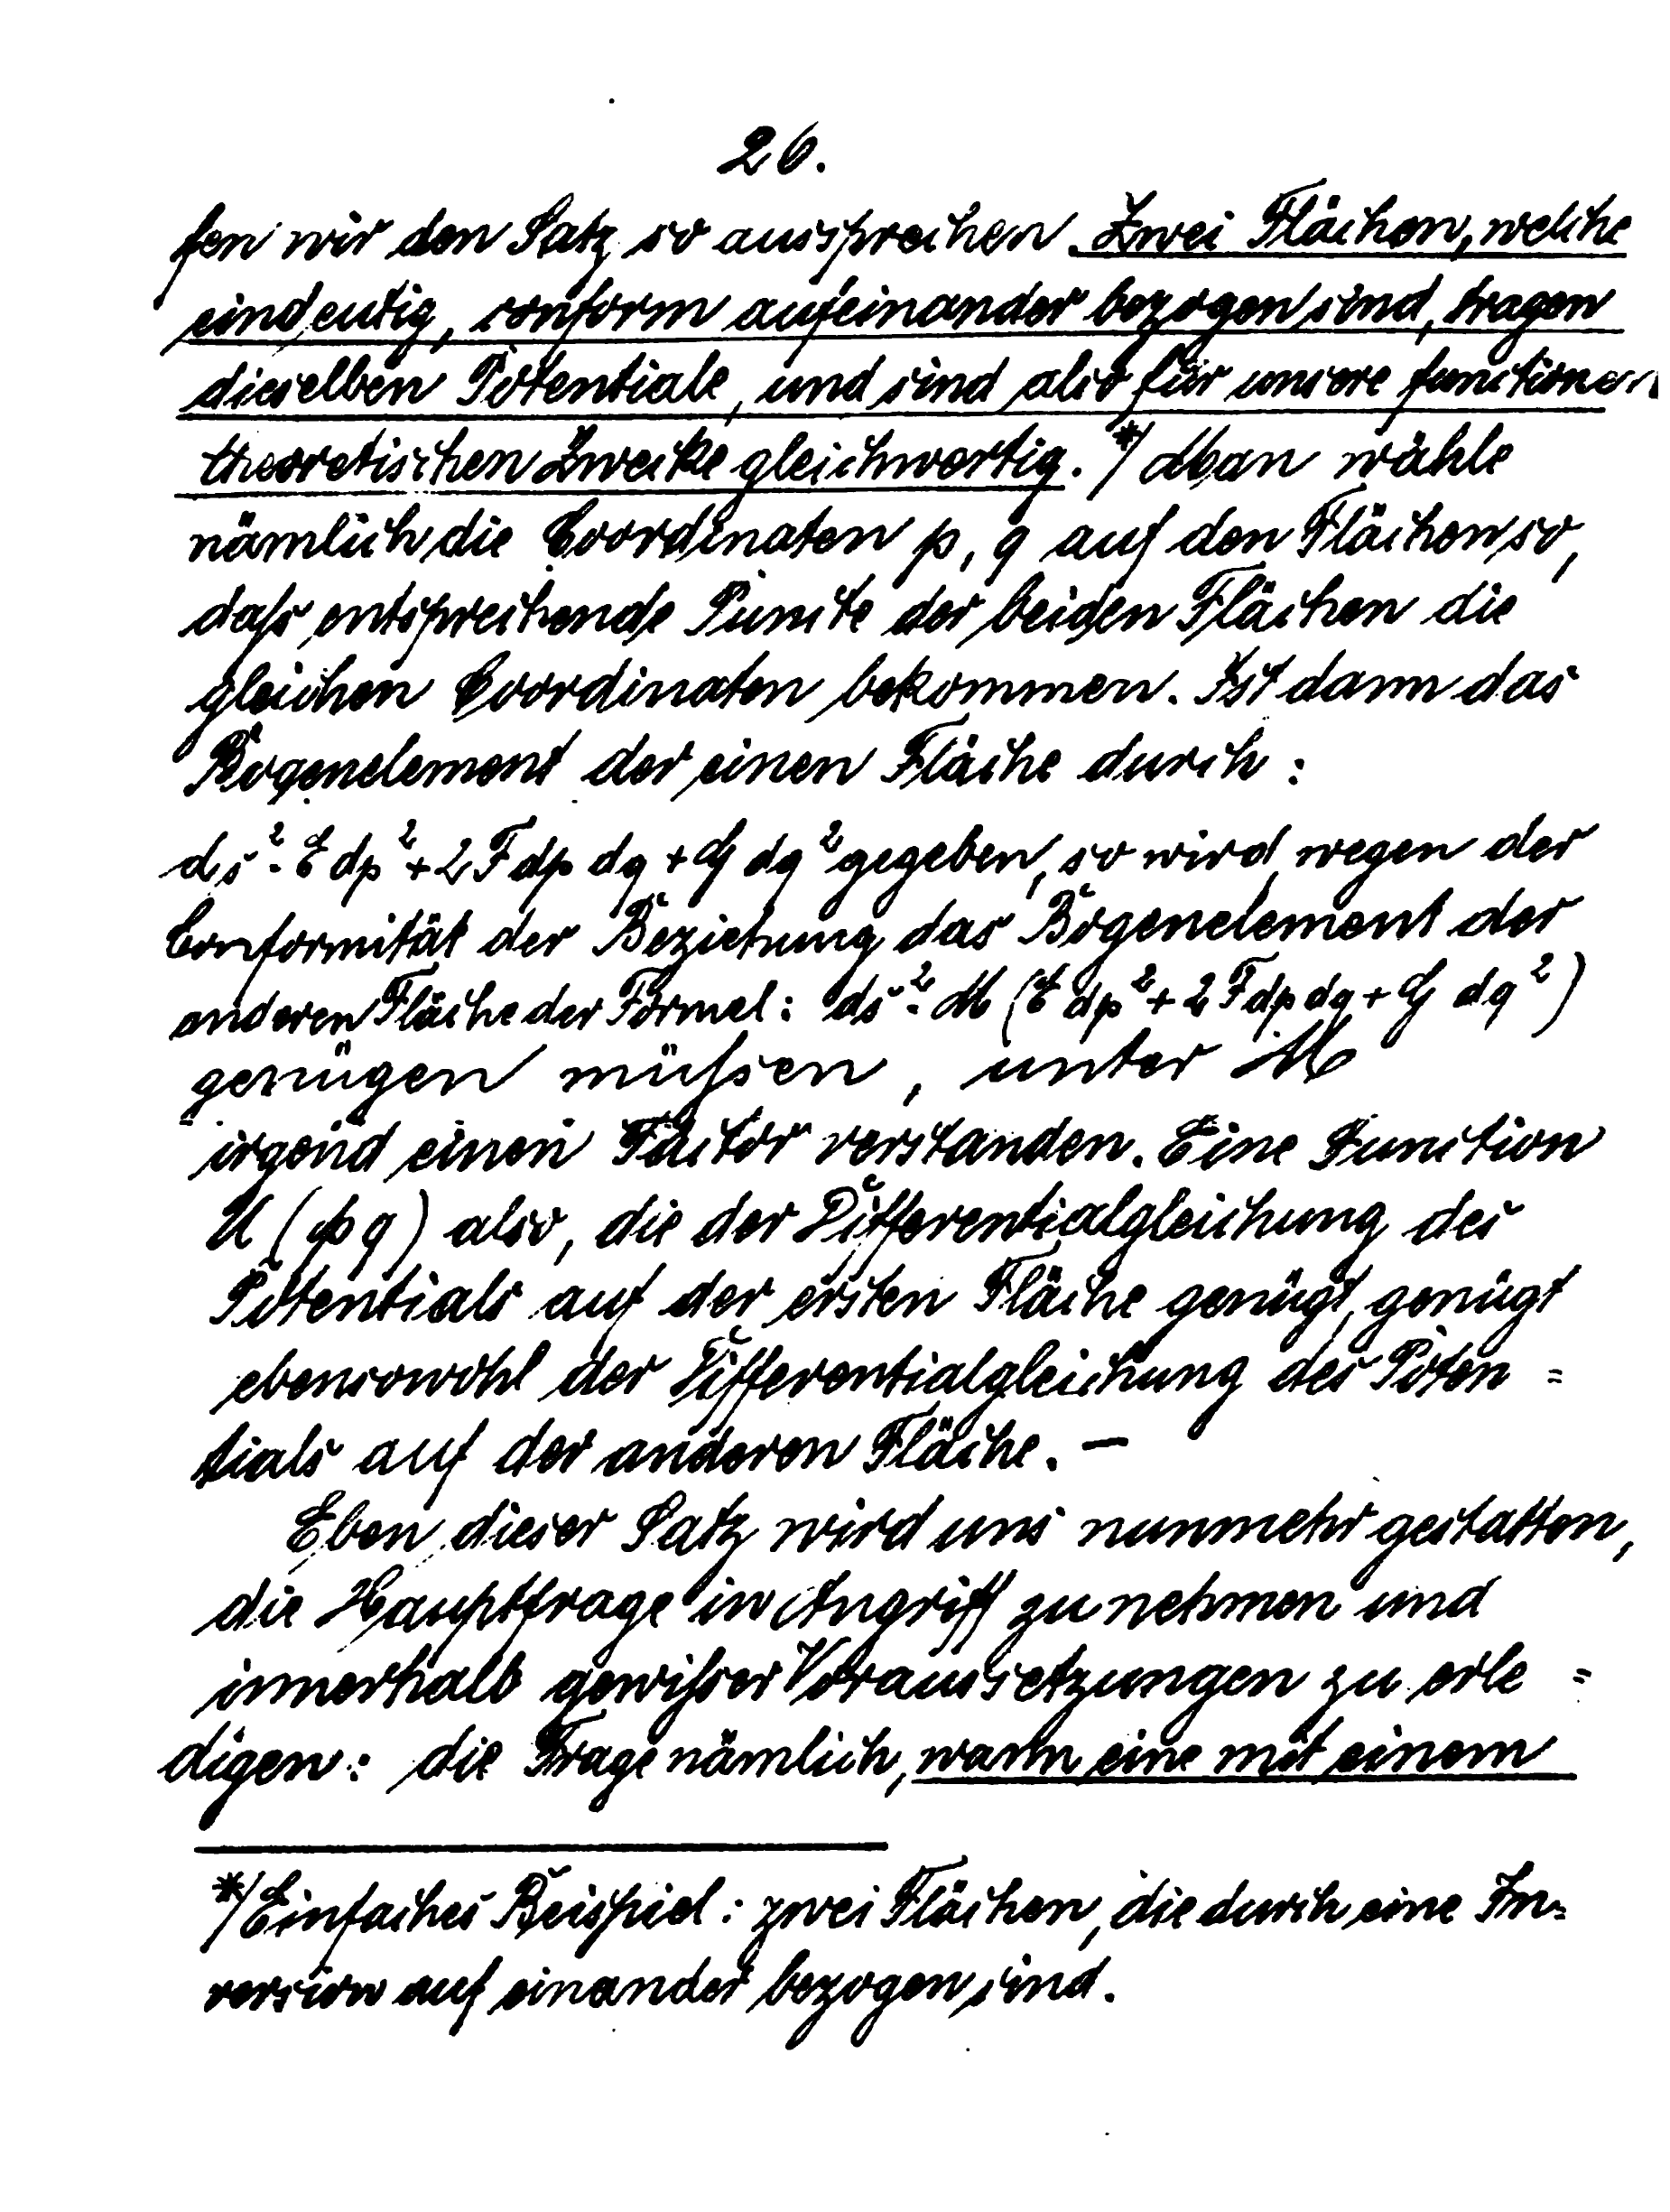 26.
fen wir den Satz so aussprechen. Zwei Flächen, welche
eindeutig, conform aufeinander bezogen sind, tragen
dieselben Potentiale, und sind also für unsere functionen
theoretischen Zwecke gleichwertig. *) Man wähle
nämlich die Coordinaten p, q auf den Flächen so,
daſs entsprechende Puncte der beiden Flächen die
gleichen Coordinaten bekommen. Ist dann das
Bogenelement der einen Fläche durch:
ds² = E dp² + 2 F dp dq + G dq² gegeben, so wird wegen der
Conformität der Beziehung das Bogenelement der
anderen Fläche der Formel: ds² = M (E dp² + 2 F dp dq + G dq²)
genügen müſsen, unter M
irgend einen Factor verstanden. Eine Function
U (p q) also, die der Differentialgleichung des
Potentials auf der ersten Fläche genügt, genügt
ebensowohl der Differentialgleichung des Poten=
tials auf der anderen Fläche. —
Eben dieser Satz wird uns nunmehr gestatten,
die Hauptfrage in Angriff zu nehmen und
innerhalb gewiſser Voraussetzungen zu erle=
digen: die Frage nämlich, wann eine mit einem
*) Einfaches Beispiel: zwei Flächen, die durch eine In=
version auf einander bezogen sind.